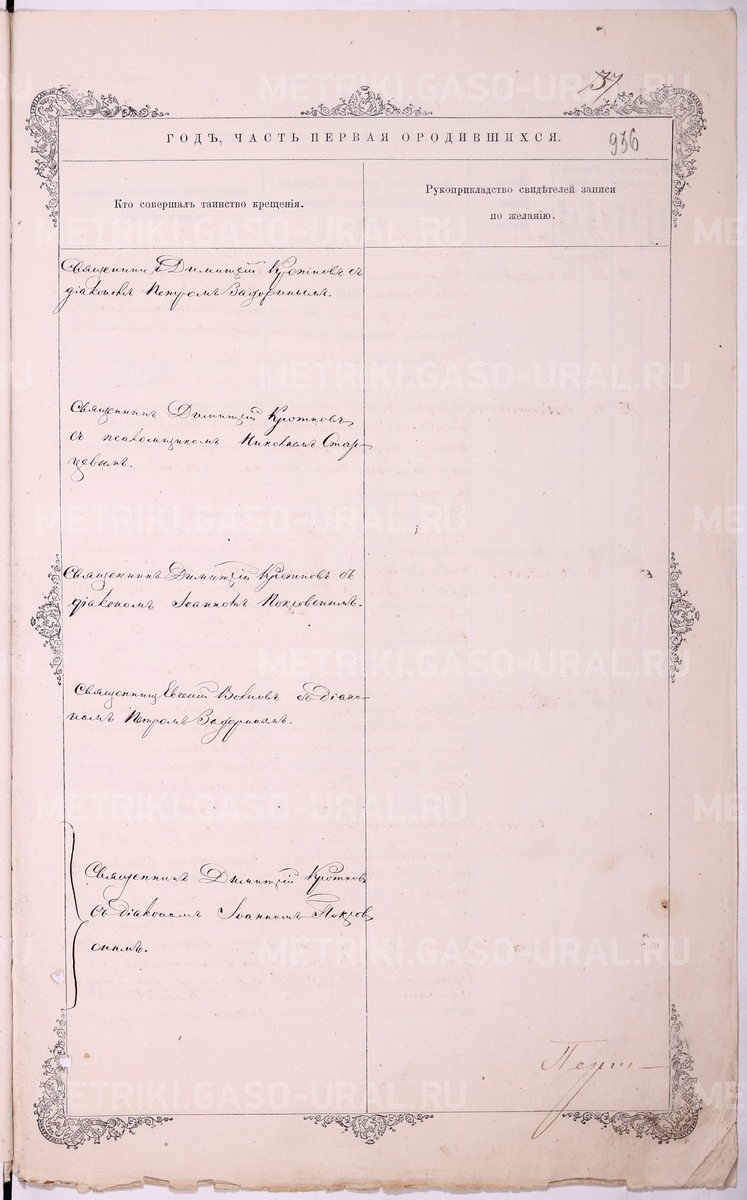 37
ГОДЪ, ЧАСТЬ ПЕРВАЯ О РОДИВШИХСЯ.
936
Кто совершалъ таинство крещенія.
Рукоприкладство свидѣтелей записи
по желанію.
Священникъ Димитрій Кротковъ съ
діакономъ Петромъ
Священникъ Димитрій Кротковъ
съ псаломщикомъ Николаемъ Стар-
цевымъ.
Священникъ Димитрій Кротковъ съ
діакономъ Іоанномъ Покровскимъ.
Священникъ Евгеній съ діако-
номъ Петромъ
Священникъ Димитрій Кротковъ
съ діакономъ Іоанномъ Покров
скимъ.
METRIKI.GASO-URAL.RU